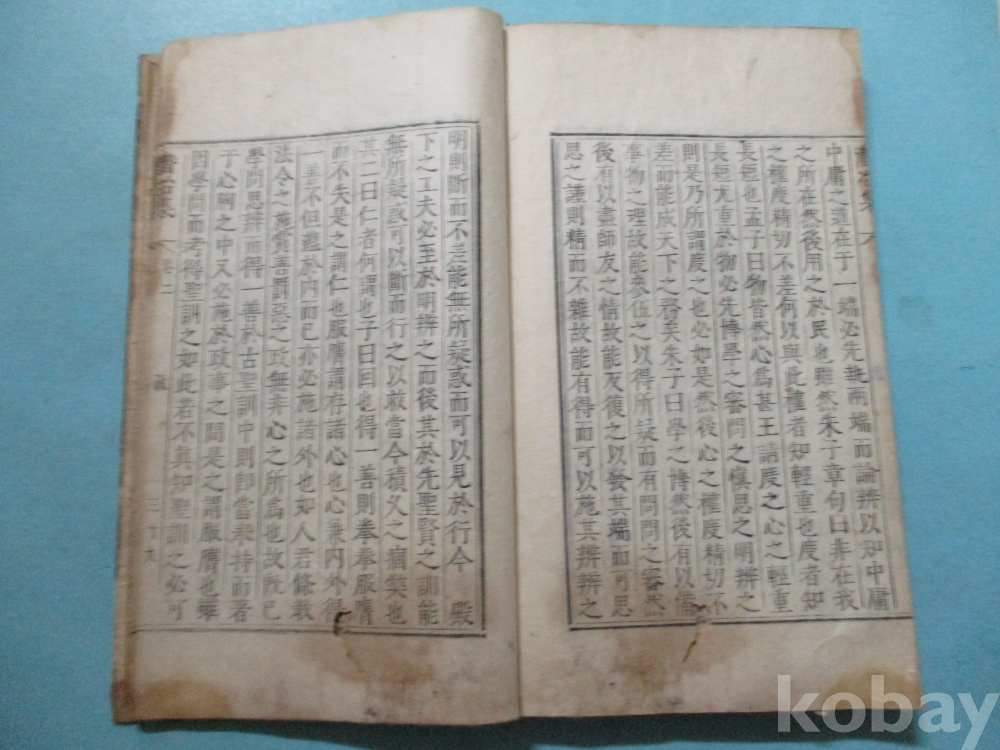 中庸之道在于一端必先執兩端而論辨以知中庸
之所在然後用之於民也雖然朱子章句曰非在我
之權度精切不差何以與此權者知輕重也度者知
長短也孟子曰物皆然心爲甚王請度之心之輕重
長短尤重於物必先博學之審問之愼思之明辨之
則是乃所謂度之也必如是然後心之權度精切不
差而能成天下之務矣朱子曰學之博然後有以備
事物之理故能參伍之以得所疑而有問問之審然
後有以盡師友之情故能反復之以發其端而可思
思之謹則精而不雜故能有得而可以施其辨辨之
明則斷而不差能無所疑惑而可以見於行今 殿
下之工夫必至於明辨之而後其於先聖賢之謂能
無所疑惑可以斷而行之以救當今積久之痼弊也
其二曰仁者何謂也子曰回也得一善則拳拳服膺
而不失是之謂仁也服膺謂存諸心也心兼內外得
一善不但
於內而已亦必施諸外也如人君條敎
法令之施賞善罰惡之政無非心之所爲也故旣已
學問思辨而得一善於古聖訓中則卽當奉持而著
于心胸之中又必施於政事之間是之謂服膺也雖
因學問而考得聖訓之如此若不眞知聖訓之必可
集 卷二
kobay